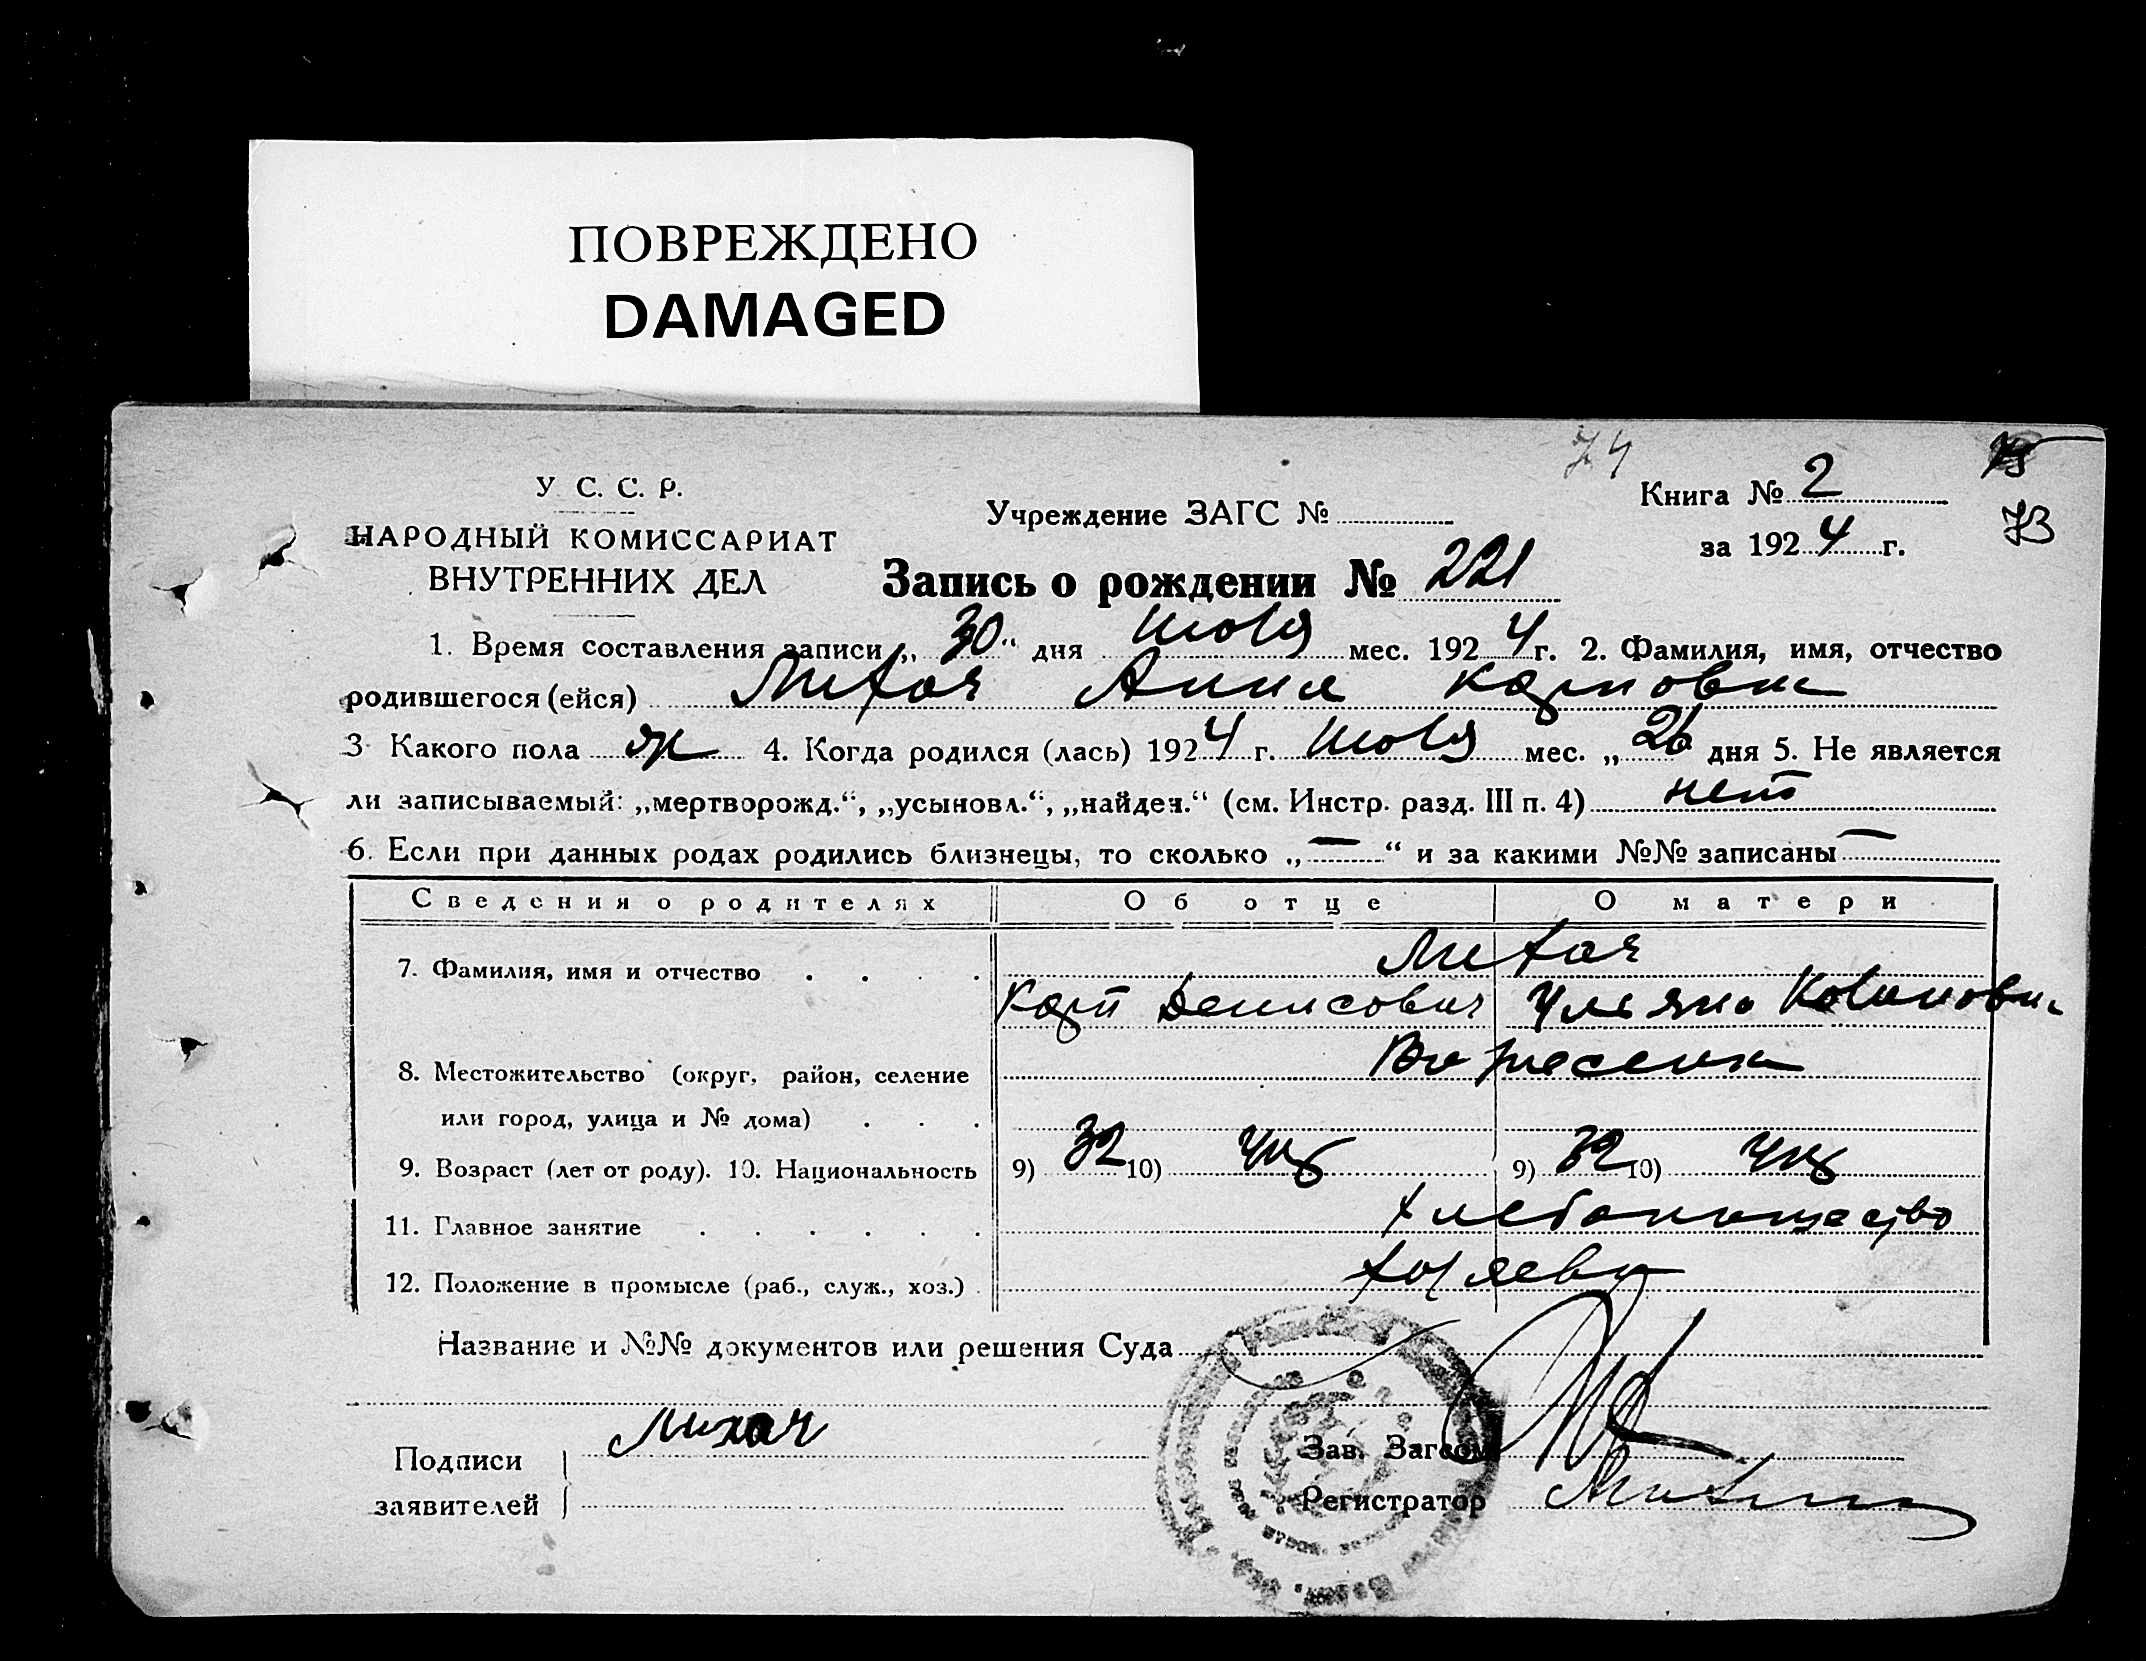 ПОВРЕЖДЕНО
DAMAGED
74
У. С. С. Р.
НАРОДНЫЙ КОМИССАРИАТ
ВНУТРЕННИХ ДЕЛ
Учреждение ЗАГС №
Книга № 2
73
за 1924 г.
Запись о рождении № 221
1. Время составления записи „30“ дня Июля мес. 1924 г. 2. Фамилия, имя, отчество
родившегося (ейся) Лихач Анна Карповна
3. Какого пола ж 4. Когда родился (лась) 1924 г. Июля мес. „26 дня 5. Не является
ли записываемый: „мертворожд.“, „усыновл.“, „найден.“ (см. Инстр. разд. III п. 4) нет
6. Если при данных родах родились близнецы, то сколько „—“ и за какими №№ записаны —
Сведения о родителях Об отце О матери
7. Фамилия, имя и отчество Лихач
Карп Денисович Ульяна
8. Местожительство (округ, район, селение
или город, улица и № дома)
9. Возраст (лет от роду). 10. Национальность 9) 32 10) Укр 9) 32 10) Укр
11. Главное занятие Хлебопашество
12. Положение в промысле (раб., служ., хоз.) Хозяева
Название и №№ документов или решения Суда
Подписи
заявителей
Лихач
Зав. Загсом
Регистратор